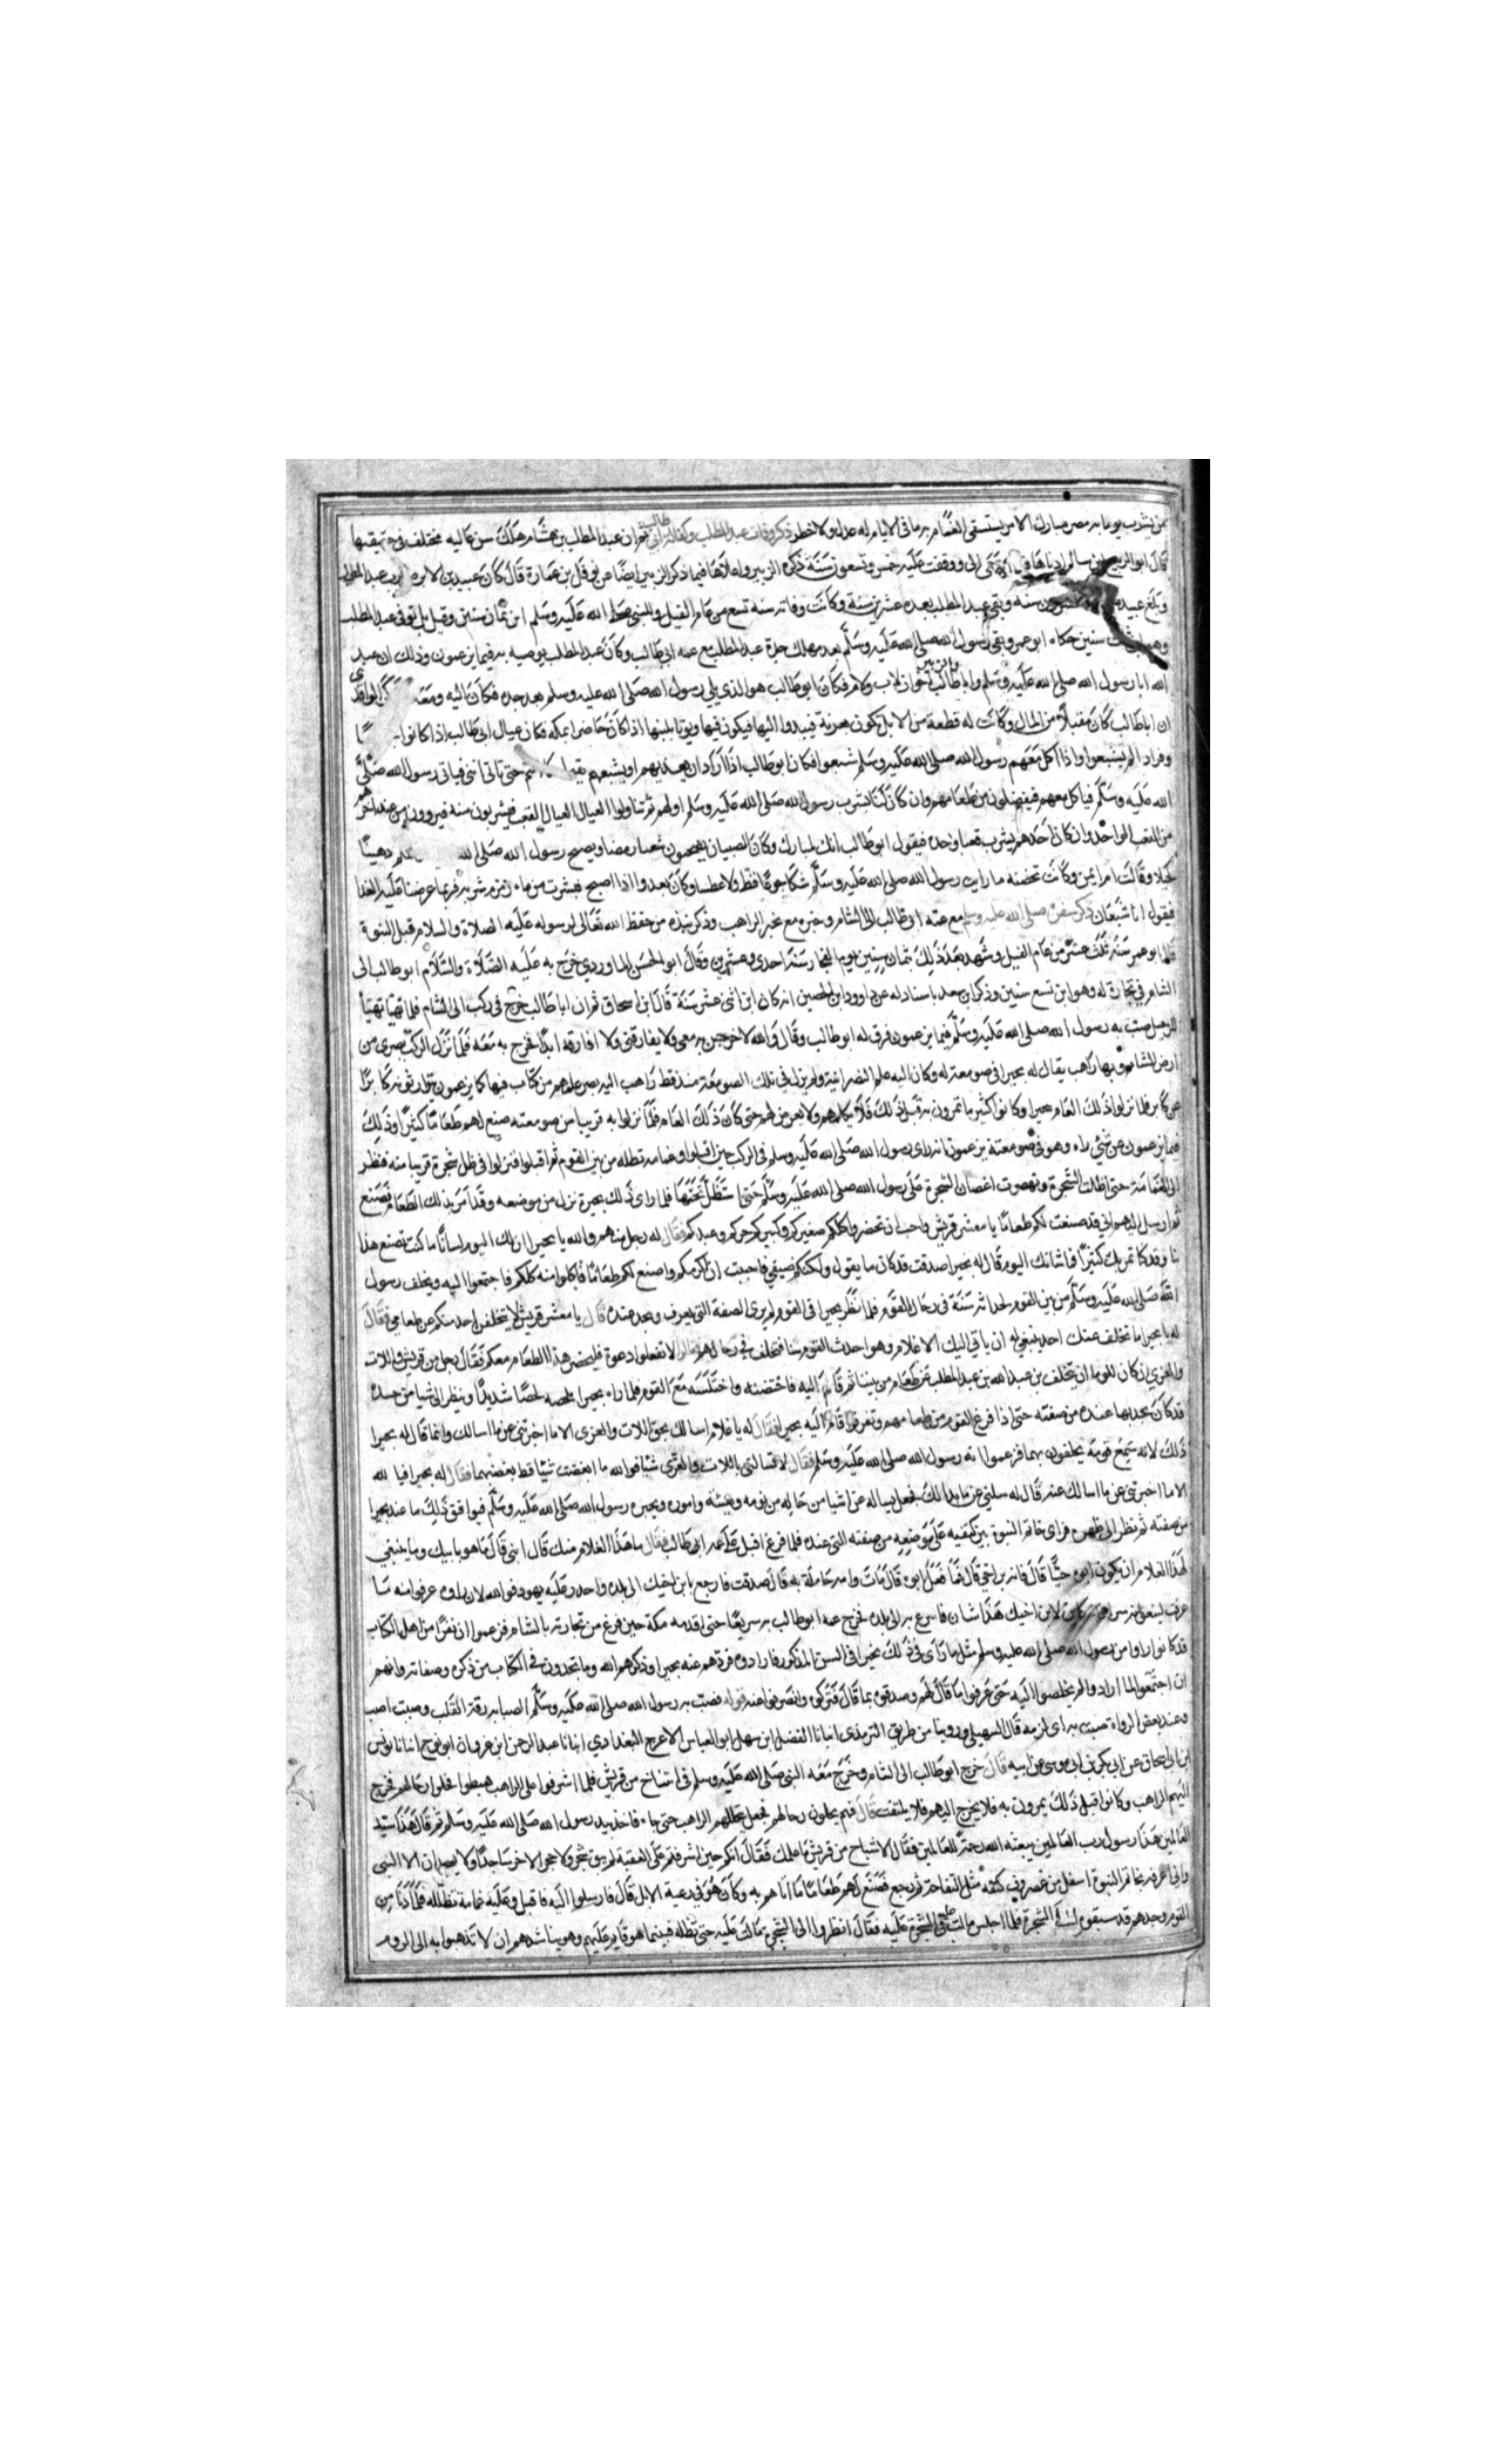 من بشرت يوما به مضر مبارك الامر يستسقى الغمام به ما فى الانام له عدل ولا خطر ذكر وفاة عبد المطلب وكفالة ابى طالب ثم ان عبد المطلب بن هشام هلك عن سن عالية مختلف فى حقيقتها
قال ابو الربيع بن سالم ادناها فيما انتهى الى ووقفت عليه خمس وتسعون سنة ذكره الزبير واعلاها فيما ذكر الزبير ايضا عن نوفل بن عمارة قال كان عبيد بن الابرص ترب عبد المطلب
وبلغ عبيد مائة وعشرين سنة وبقى عبد المطلب بعده عشرين سنة وكانت وفاته سنة تسع من عام الفيل وللنبى صلى الله عليه وسلم ابن ثمان سنين وقيل بل توفى عبد المطلب
وهو ابن ثلاث سنين حكاه ابو عمر وبقى رسول الله صلى الله عليه وسلم بعد مهلك جده عبد المطلب مع عمه ابى طالب وكان عبد المطلب يوصيه به فيما يزعمون وذلك ان عبد
الله ابا رسول الله صلى الله عليه وسلم وابا طالب والزبير اخوان لاب ولام فكان ابو طالب هو الذى يلى رسول الله صلى الله عليه وسلم بعد جده فكان اليه ومعه الواقدى
ان ابا طالب كان مقبلا من المال وكانت له قطعة من الابل تكون بعرنة فيبدوا اليها فيكون فيها ويوتا بلبنها اذا كان حاضرا بمكة فكان عيال ابى طالب اذا كانوا
وفرادا لم يشبعوا واذا اكل معهم رسول الله صلى الله عليه وسلم شبعوا فكان ابو طالب اذا اراد ان يغديهم او يعشيهم يقول حتى ياتى ابنى فياتى رسول الله صلى
الله عليه وسلم فياكل معهم فيفضلون من طعامهم وان كان لبنا شرب رسول الله صلى الله عليه وسلم اولهم ثم تناولوا العيال القعب فيشربون منه فيروون من عند اخرهم
من القعب الواحد وان كان احدهم يشرب قعبا وحده فيقول ابو طالب انك لمبارك وكان الصبيان يصبحون شعثا رمصا ويصبح رسول الله صلى الله دهينا
كحيلا وقالت ام ايمن وكانت تحضنه ما رايت رسول الله صلى الله عليه وسلم شكا جوعا قط ولا عطشا وكان يغدوا اذا اصبح فيشرب من ماء زمزم شربة فربما عرضنا عليه الغدا
فيقول انا شبعان ذكر سفره صلى الله عليه وسلم مع عمه ابى طالب الى الشام وخبره مع بحير الراهب وذكر نبذة من حفظ الله تعالى لرسوله عليه الصلاة والسلام قبل النبوة
قال ابو عمر سنة ثلث عشرة من عام الفيل وشهد بعد ذلك بثمان سنين يوم الفجار سنة احدى وعشرين وقال ابو الحسن الماوردي خرج به عليه الصلاة والسلام ابو طالب الى
الشام فى تجارة له وهو ابن تسع سنين وذكر ابن سعد باسناد له عن داوود ابن الحصين انه كان ابن اثنى عشرة سنة قال ابن اسحاق ثم ان ابا طالب خرج فى ركب الى الشام فلما تهيأ
للرحيل صبت به رسول الله صلى الله عليه وسلم فيما يزعمون فرق له ابو طالب وقال والله لاخرجن به معى ولا يفارقنى ولا افارقه ابدا فخرج به معه فلما نزل الركب بصرى من
ارض الشام وبها راهب يقال له بحيرا فى صومعة له وكان اليه علم النصرانية ولم يزل فى تلك الصومعة منذ قط راهب اليه يصير علمهم من كتاب فيها كما يزعمون يتوارثونه كابرا
عن كابر فلما نزلوا ذلك العام ببحيرا وكانوا كثيرا ما يمرون به قبل ذلك فلا يكلمهم ولا يعرض لهم حتى كان ذلك العام فلما نزلوا به قريبا من صومعته صنع لهم طعاما كثيرا وذلك
فيما يزعمون عن شئ راه وهو فى صومعته يزعمون انه راى رسول الله صلى الله عليه وسلم فى الركب حين اقبلوا وغمامة تظله من بين القوم ثم اقبلوا فنزلوا فى ظل شجرة قريبا منه فنظر
الى الغمامة حتى اظلت الشجرة وتهصرت اغصان الشجرة على رسول الله صلى الله عليه وسلم حتى استظل تحتها فلما راى ذلك بحيرة نزل من صومعته وقد امر بذلك الطعام فصنع
ثم ارسل اليهم انى قد صنعت لكم طعاما يا معشر قريش واحب ان تحضروا كلكم صغيركم وكبيركم حركم وعبدكم فقال له رجل منهم والله يا بحيرا ان لك اليوم لشانا ما كنت تصنع هذا
بنا وقد كنا نمر بك كثيرا فما شانك اليوم قال له بحيرا صدقت قد كان ما يقول ولكنكم ضيفي فاحببت ان اكرمكم واصنع لكم طعاما فتاكلوا منه كلكم فاجتمعوا اليه وتخلف رسول
الله صلى الله عليه وسلم من بين القوم لحداثة سنه فى رحال القوم فلما نظر بحيرا فى القوم لم يرى الصفة التى يعرف ويجد عنده قال يا معشر قريش لا يتخلفن احد منكم عن طعامى فقال
له يا بحيرا ما تخلف عنك احد ينبغى له ان ياتى اليك الا غلام وهو احدث القوم سنا فتخلف فى رحالهم قال لا تفعلوا ادعوه فليحضر هذا الطعام معكم فقال رجل من قريش واللات
والعزى ان كان للؤما ان يتخلف بن عبد الله بن عبد المطلب عن طعام من بيننا ثم قام اليه فاحتضنه واجلسه مع القوم فلما راه بحيرا لحصه لحصا شديدا وينظر الى اشيا من جسده
قد كان يجدها عنده من صفته حتى اذا فرغ القوم من طعامهم وتفرقوا قام اليه بحيرا فقال له يا غلام اسالك بحق اللات والعزى الا ما اخبرتنى عن ما اسالك وانما قال له بحيرا
ذلك لانه سمع قومه يحلفون بهما فزعموا انه رسول الله صلى الله عليه وسلم فقال لا تسالنى باللات والعزى شيئا فوالله ما ابغضت شيئا قط بغضهما فقال له بحيرا فبالله
الا ما اخبرتنى عن ما اسالك عنه قال له سلنى عن ما بدا لك فجعل يساله عن اشيا من حاله من نومه وهيئته واموره ويخبره رسول الله صلى الله عليه وسلم فيوافق ذلك ما عند بحيرا
من صفته ثم نظر الى ظهره فراى خاتم النبوة بين كتفيه على موضعه من صفته التى عنده فلما فرغ اقبل على عمه ابى طالب فقال ما هذا الغلام منك قال ابنى قال ما هو بابنك وما ينبغى
لهذا الغلام ان يكون ابوه حيا قال فانه بن اخى قال فما فعل ابوه قال مات وامه حاملة به قال صدقت فارجع بابن اخيك الى بلده واحذر عليه يهود فوالله لان راوه عرفوا منه ما
عرفت ليبغونه شرا فانه كائن لابن اخيك هذا شان فاسرع به الى بلده فخرج عمه ابو طالب به سريعا حتى اقدمه مكة حين فرغ من تجارته بالشام فزعموا ان نفرا من اهل الكتاب
قد كانوا راوا من رسول الله صلى الله عليه وسلم مثل ما راى فى ذلك بحيرا فى السن المذكور فارادوه فردهم عنه بحيرا وذكرهم الله وما يجدون فى الكتاب من ذكره وصفاته وانهم
ان اجتمعوا لما ارادوا لم يخلصوا اليه حتى عرفوا ما قال لهم وصدقوه بما قال فتركوه وانصرفوا عنه قوله فصبت به رسول الله صلى الله عليه وسلم الصبابه رقة القلب وصبت اصب
وعند بعض الرواة ضبث به اى لزمه قال السهيلى وروينا من طريق الترمذى انبانا الفضل ابن سهل ابو العباس الاعرج البغدادي انبانا عبد الرحمن ابن غزوان ابو نوح انبانا يونس
ابن ابى اسحاق عن ابى بكر بن ابى موسى عن ابيه قال خرج ابو طالب الى الشام وخرج معه النبى صلى الله عليه وسلم فى اشياخ من قريش فلما اشرفوا على الراهب هبطوا فحلوا رحالهم فخرج
اليهم الراهب وكانوا قبل ذلك يمرون به فلا يخرج اليهم فلا يلتفت قال فهم يحلون رحالهم فجعل يتخللهم الراهب حتى جاء فاخذ بيد رسول الله صلى الله عليه وسلم ثم قال هذا سيد
العالمين هذا رسول رب العالمين يبعثه الله رحمة للعالمين فقال الاشياخ من قريش ما علمك فقال انكم حين اشرفتم على العقبة لم يبق شجر ولا حجر الا خر ساجدا ولا يسجدان الا لنبى
وانى اعرفه بخاتم النبوة اسفل من غضروف كتفه مثل التفاحة ثم رجع فصنع لهم طعاما فلما اتاهم به وكان هو فى رعية الابل قال فارسلوا اليه فاقبل وعليه غمامة تظله فلما دنا من
القوم وجدهم قد سبقوه الى فئ الشجرة فلما جلس مال فئ الشجرة عليه فقال انظروا الى فئ الشجرة مال عليه حتى تظله فبينما هو قايم عليهم وهو يناشدهم ان لا تذهبوا به الى الروم